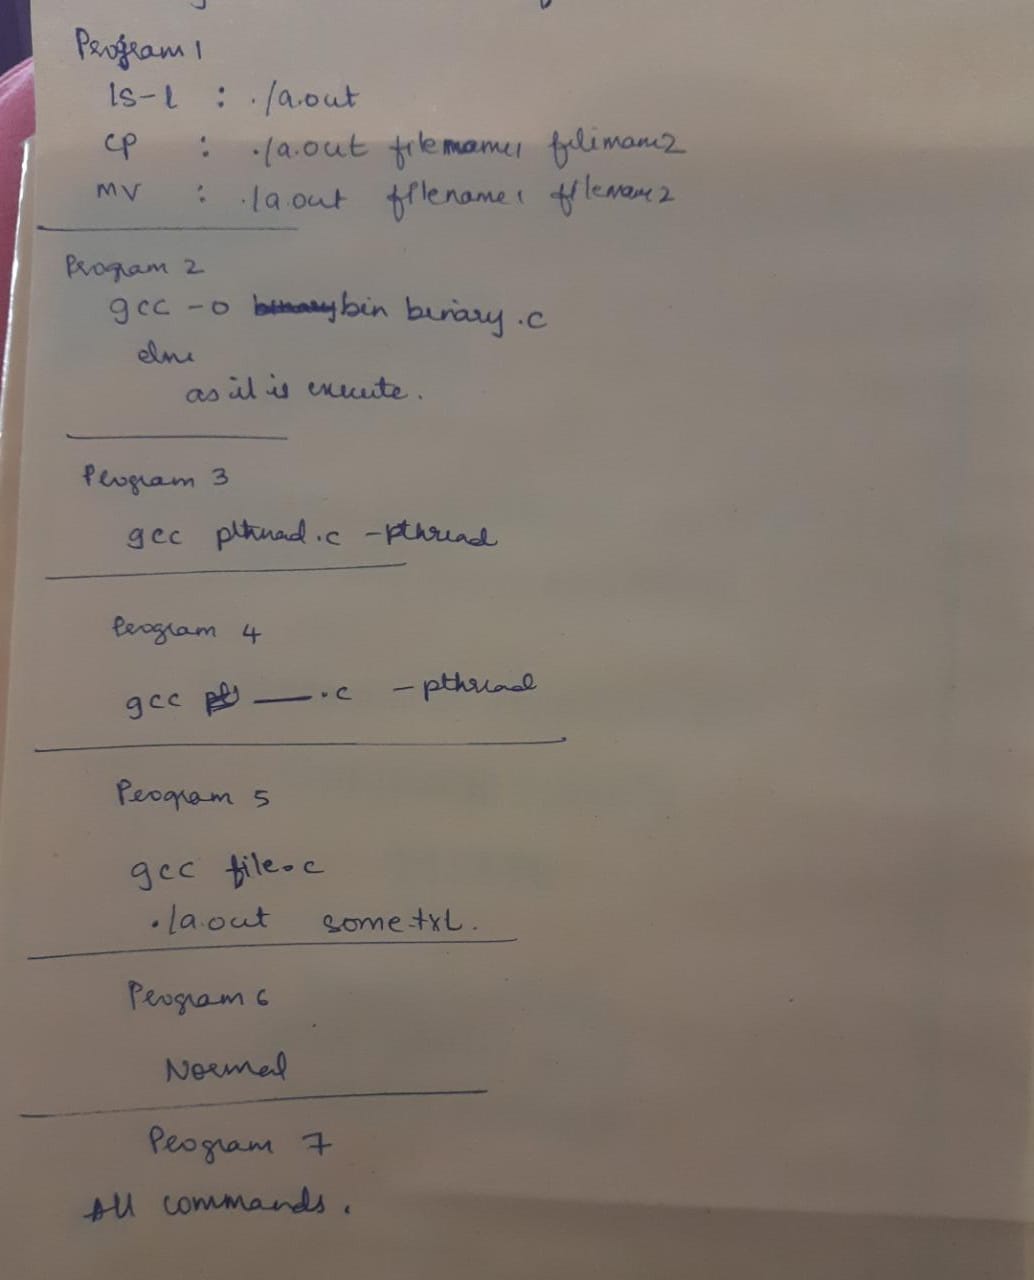 Program 1
ls-l : ./a.out
cp : ./a.out filename1 filename2
mv : ./a.out filename1 filename2
Program 2
gcc -o bin binary.c
else
as it is execute.
Program 3
gcc pthread.c -pthread
Program 4
gcc ___.c -pthread
Program 5
gcc file.c
./a.out some.txt.
Program 6
Normal
Program 7
All commands.